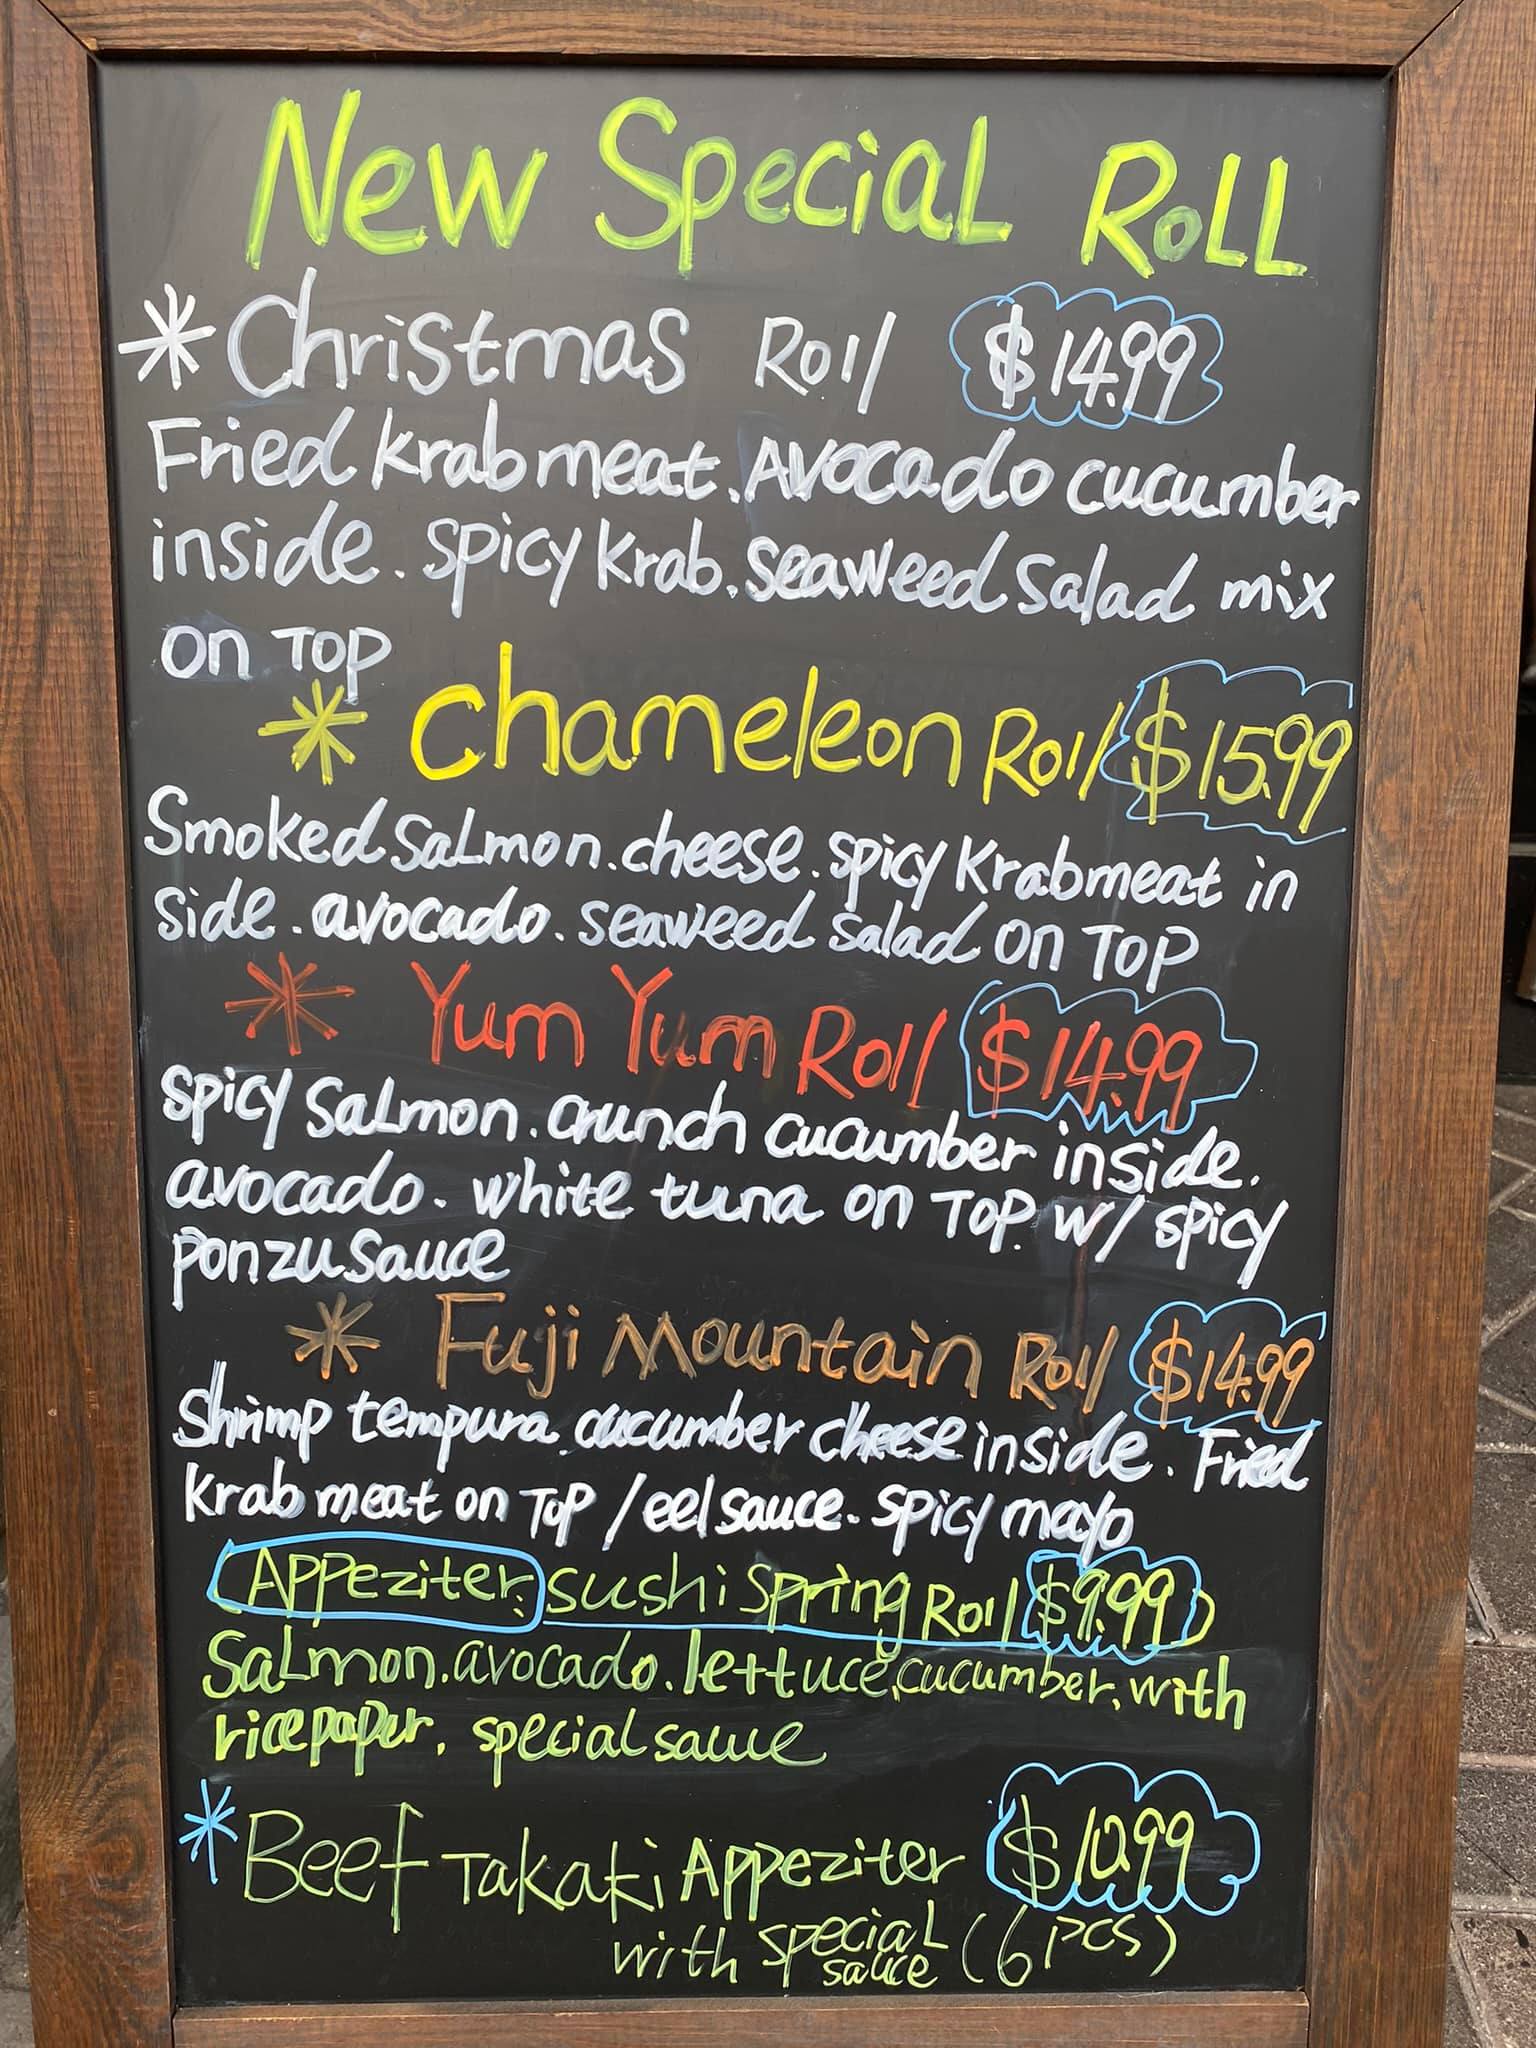 New Special Roll
* Christmas Roll $14.99
Fried krab meat. Avocado cucumber
inside. spicy krab. seaweed salad mix
on Top
* Chameleon Roll $15.99
Smoked salmon. cheese. spicy Krab meat in
side. avocado. seaweed salad on Top
* Yum Yum Roll $14.99
spicy salmon. crunch cucumber inside.
avocado. white tuna on Top. w/ spicy
ponzu sauce
* Fuji Mountain Roll $14.99
Shrimp tempura. cucumber cheese inside. Fried
krab meat on Top / eel sauce. spicy mayo
Appeziter: sushi Spring Roll $9.99
Salmon. avocado. lettuce, cucumber, with
rice paper. special sauce
* Beef Takaki Appeziter $10.99
with special sauce (6 pcs)